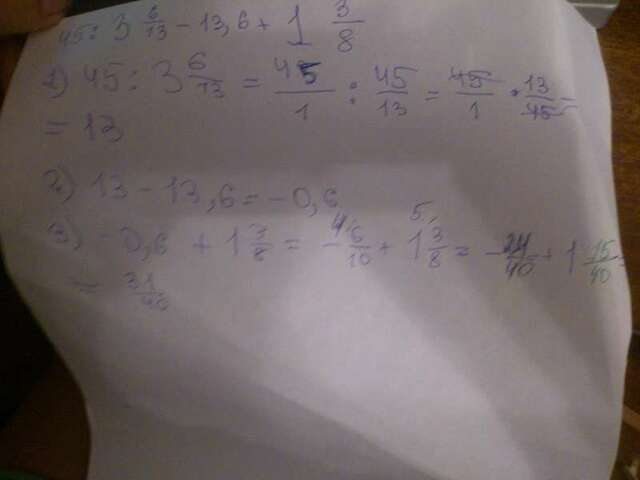 45 : 3 6/13 - 13,6 + 1 3/8
1) 45 : 3 6/13 = 45/1 : 45/13 = 45/1 · 13/45 =
= 13
2) 13 - 13,6 = -0,6
3) -0,6 + 1 3/8 = -6/10 + 1 3/8 = -24/40 + 1 15/40 =
= 31/40